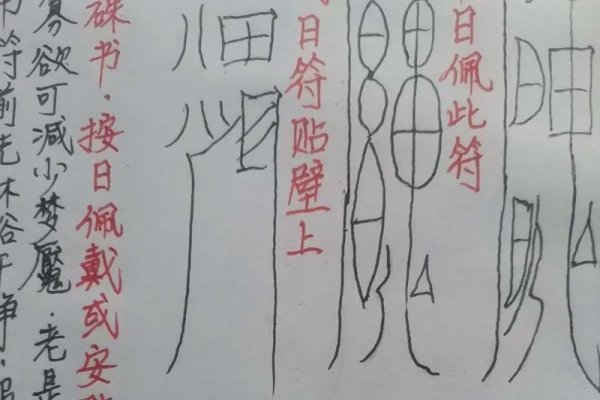 日佩此符
日符贴壁上
硃书.按日佩戴或安
寡欲可减小梦魇.老是
书符前先沐浴干净.